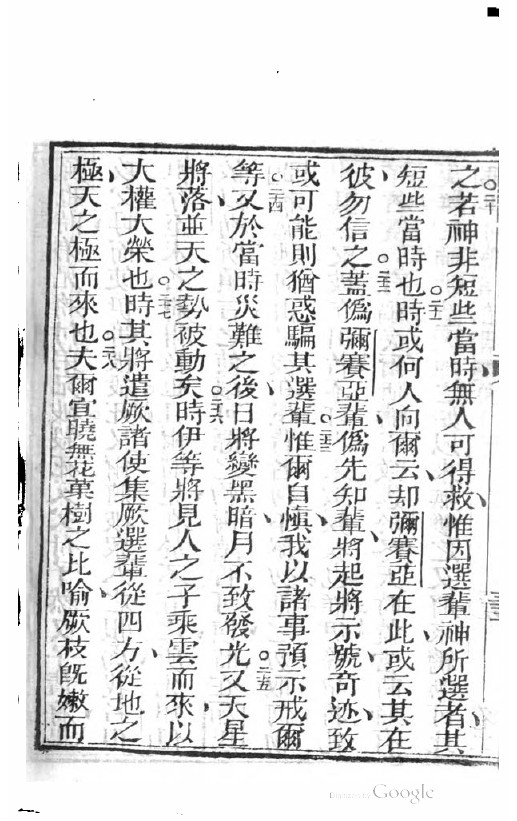 之○二十若神非短些當時無人可得救惟因選輩神所選者其
短些當時也○二一時或何人向爾云却彌賽亞在此或云其在
彼勿信之○二二蓋僞彌賽亞輩僞先知輩將起將示號奇迹致
或可能則猶惑騙其選輩○二三惟爾自愼我以諸事預示戒爾
等○二四又於當時災難之後日將變黑暗月不致發光○二五又天星
將落並天之勢被動矣○二六時伊等將見人之子乘雲而來以
大權大榮也○二七時其將遣厥諸使集厥選輩從四方從地之
極天之極而來也○二八夫爾宜曉無花菓樹之比喻厥枝旣嫩而
Digitized by Google